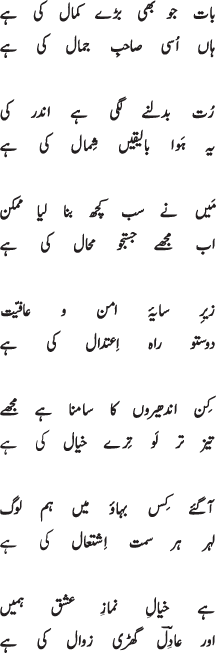 بات جو بھی بڑے کمال کی ہے
ہاں اُسی صاحبِ جمال کی ہے
رُت بدلنے لگی ہے اندر کی
یہ ہَوا بالیقیں شِمال کی ہے
مَیں نے سب کچھ بنا لیا ممکن
اب مجھے جستجو محال کی ہے
زیرِ سایۂ امن و عافیت
دوستو راہ اِعتدال کی ہے
کِن اندھیروں کا سامنا ہے مجھے
تیز تر لَو تِرے خیال کی ہے
آ گئے کِس بہاؤ میں ہم لوگ
لہر ہر سمت اِشتعال کی ہے
ہے خیالِ نمازِ عشق ہمیں
اور عادِلؔ گھڑی زوال کی ہے